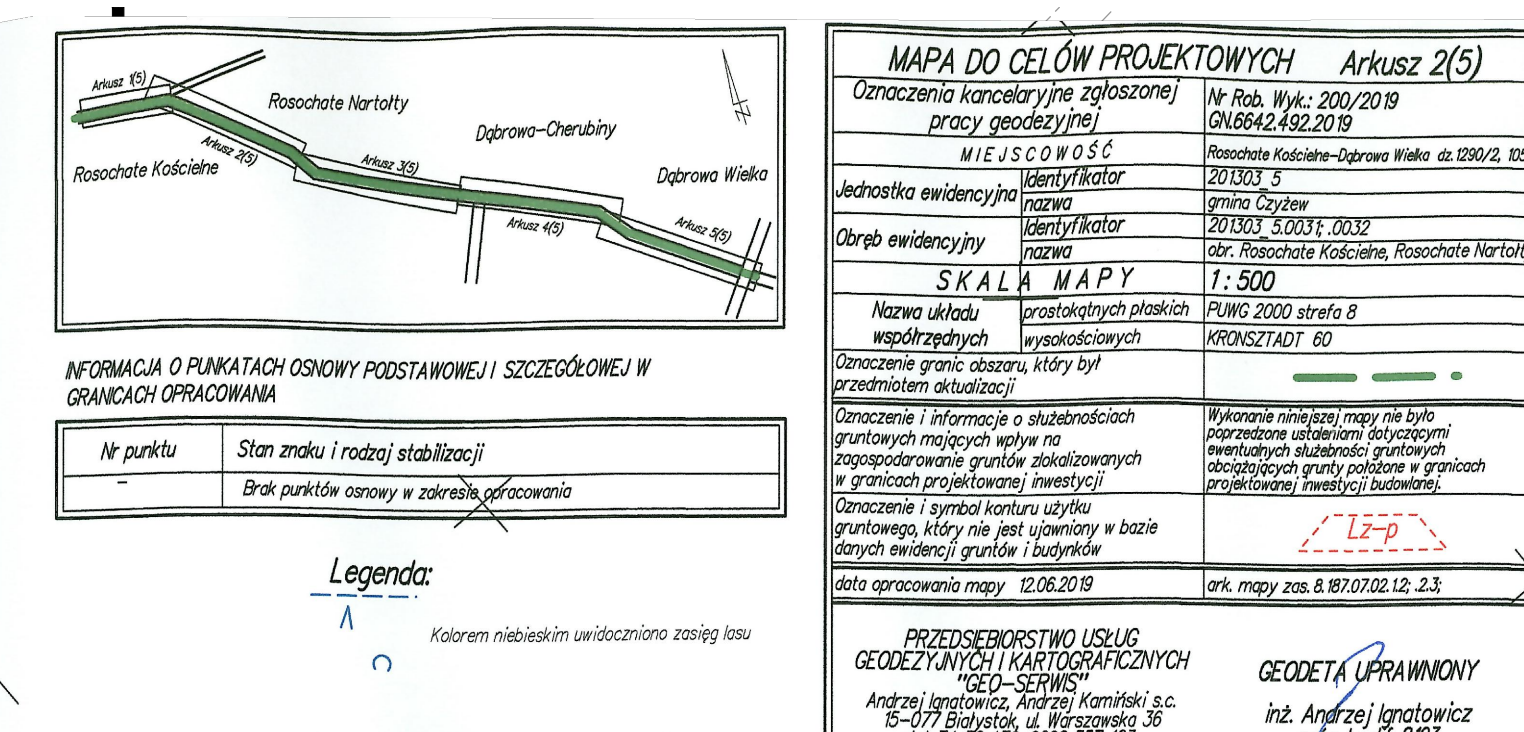 Arkusz 1(5)
Rosochate Nartołty
Dąbrowa-Cherubiny
N
Arkusz 2(5)
Arkusz 3(5)
Rosochate Kościelne
Dąbrowa Wielka
Arkusz 4(5)
Arkusz 5(5)
INFORMACJA O PUNKATACH OSNOWY PODSTAWOWEJ I SZCZEGÓŁOWEJ W
GRANICACH OPRACOWANIA
Nr punktu Stan znaku i rodzaj stabilizacji
– Brak punktów osnowy w zakresie opracowania
Legenda:
Kolorem niebieskim uwidoczniono zasięg lasu
MAPA DO CELÓW PROJEKTOWYCH Arkusz 2(5)
Oznaczenia kancelaryjne zgłoszonej
pracy geodezyjnej
Nr Rob. Wyk.: 200/2019
GN.6642.492.2019
MIEJSCOWOŚĆ Rosochate Kościelne-Dąbrowa Wielka dz. 1290/2, 105
Jednostka ewidencyjna
Identyfikator 201303_5
nazwa gmina Czyżew
Obręb ewidencyjny
Identyfikator 201303_5.0031; .0032
nazwa obr. Rosochate Kościelne, Rosochate Nartołt
SKALA MAPY 1:500
Nazwa układu
współrzędnych
prostokątnych płaskich PUWG 2000 strefa 8
wysokościowych KRONSZTADT 60
Oznaczenie granic obszaru, który był
przedmiotem aktualizacji
Oznaczenie i informacje o służebnościach
gruntowych mających wpływ na
zagospodarowanie gruntów zlokalizowanych
w granicach projektowanej inwestycji
Wykonanie niniejszej mapy nie było
poprzedzone ustaleniami dotyczącymi
ewentualnych służebności gruntowych
obciążających grunty położone w granicach
projektowanej inwestycji budowlanej.
Oznaczenie i symbol konturu użytku
gruntowego, który nie jest ujawniony w bazie
danych ewidencji gruntów i budynków
Lz-p
data opracowania mapy 12.06.2019 ark. mapy zas. 8.187.07.02.1.2; .2.3;
PRZEDSIĘBIORSTWO USŁUG
GEODEZYJNYCH I KARTOGRAFICZNYCH
"GEO-SERWIS"
Andrzej Ignatowicz, Andrzej Kamiński s.c.
15-077 Białystok, ul. Warszawska 36
GEODETA UPRAWNIONY
inż. Andrzej Ignatowicz